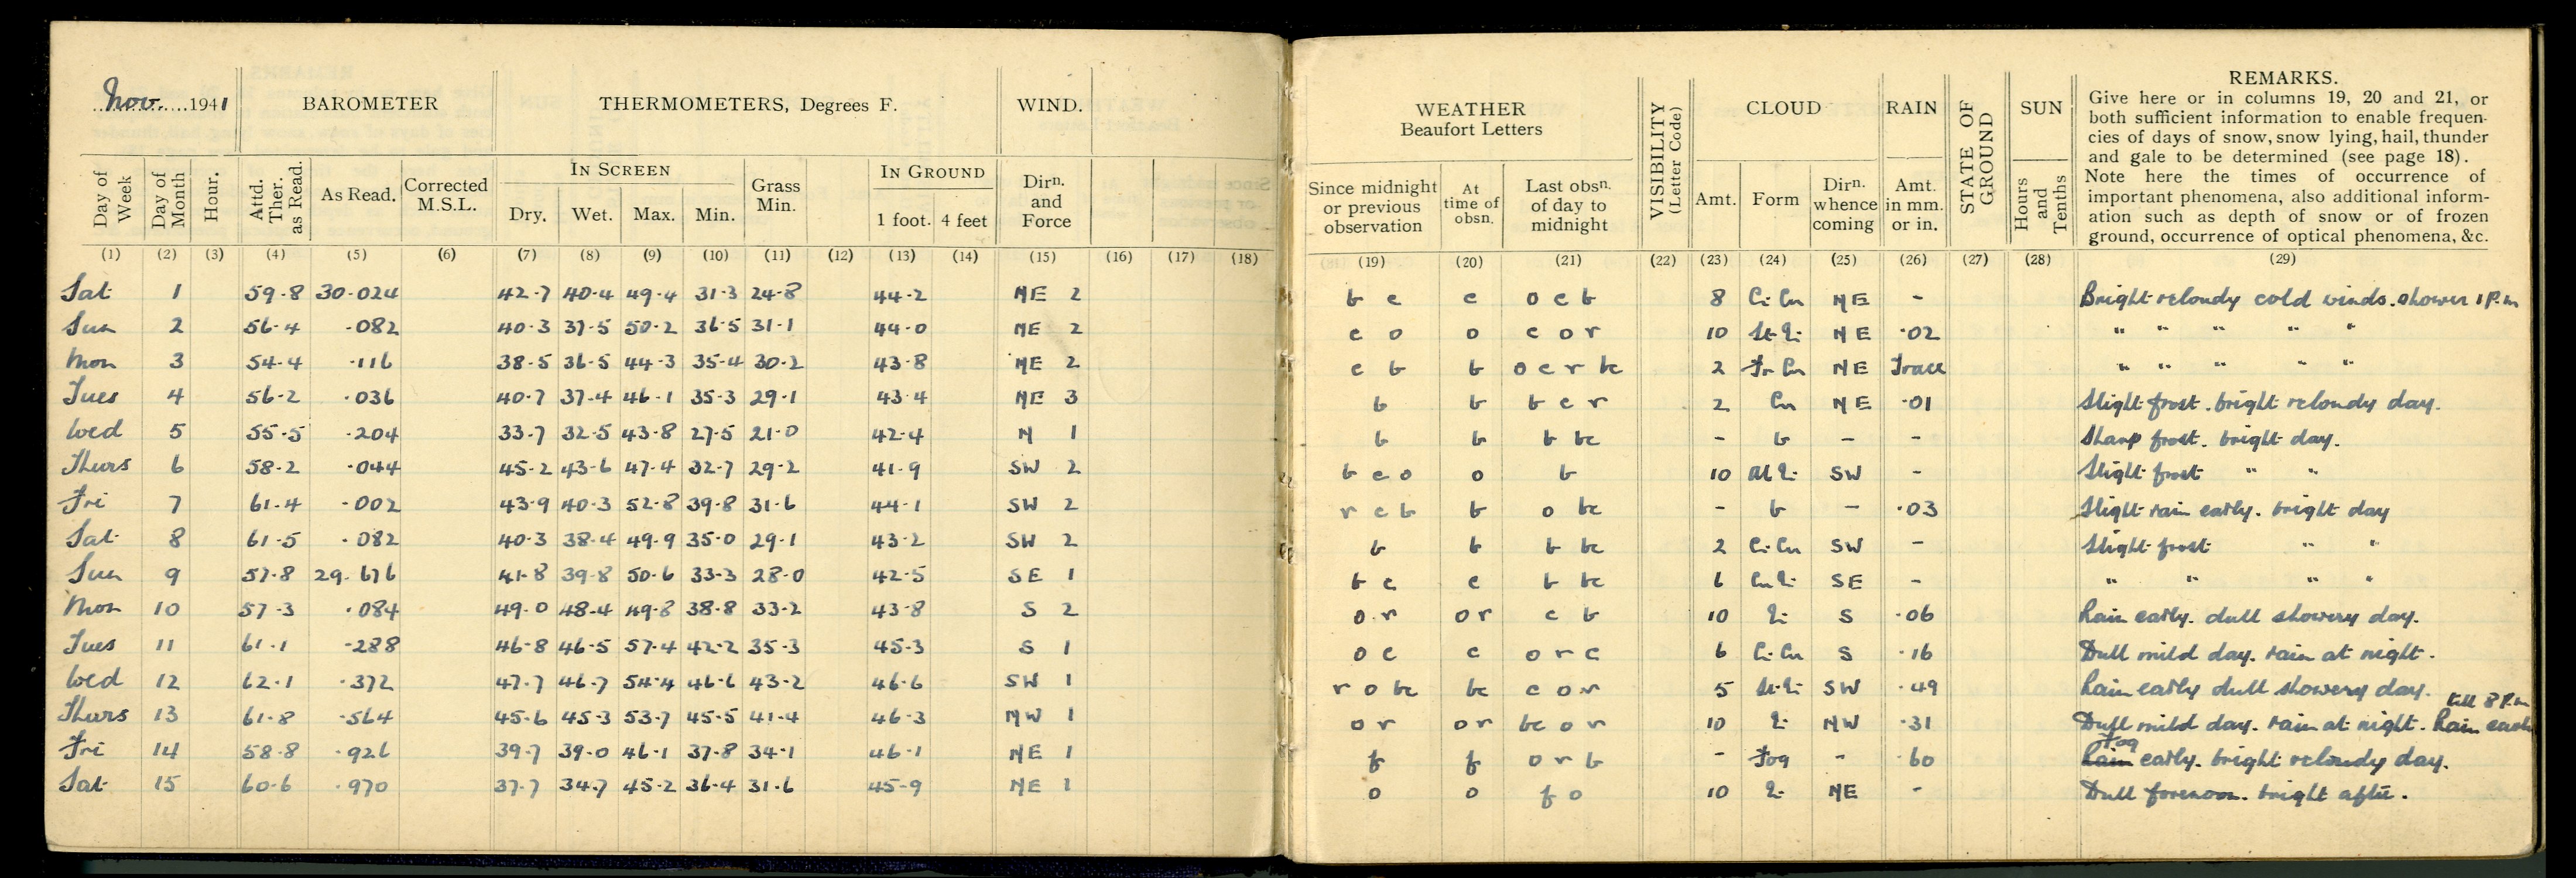 Nov. 1941 BAROMETER THERMOMETERS, Degrees F. WIND.
Day of Week Day of Month Hour. Attd. Ther. as Read. As Read. Corrected M.S.L. IN SCREEN Dry. Wet. Max. Min. Grass Min. IN GROUND 1 foot. 4 feet Dirn. and Force
(1) (2) (3) (4) (5) (6) (7) (8) (9) (10) (11) (12) (13) (14) (15) (16) (17) (18)
Sat 1 59.8 30.024 42.7 40.4 49.4 31.3 24.8 44.2 NE 2
Sun 2 56.4 .082 40.3 37.5 50.2 36.5 31.1 44.0 NE 2
Mon 3 54.4 .116 38.5 36.5 44.3 35.4 30.2 43.8 NE 2
Tues 4 56.2 .036 40.7 37.4 46.1 35.3 29.1 43.4 NE 3
Wed 5 55.5 .204 33.7 32.5 43.8 27.5 21.0 42.4 N 1
Thurs 6 58.2 .044 45.2 43.6 47.4 32.7 29.2 41.9 SW 2
Fri 7 61.4 .002 43.9 40.3 52.8 39.8 31.6 44.1 SW 2
Sat 8 61.5 .082 40.3 38.4 49.9 35.0 29.1 43.2 SW 2
Sun 9 57.8 29.676 41.8 39.8 50.6 33.3 28.0 42.5 SE 1
Mon 10 57.3 .084 49.0 48.4 49.8 38.8 33.2 43.8 S 2
Tues 11 61.1 .288 46.8 46.5 57.4 42.2 35.3 45.3 S 1
Wed 12 62.1 .372 47.7 46.7 54.4 46.6 43.2 46.6 SW 1
Thurs 13 61.8 .564 45.6 45.3 53.7 45.5 41.4 46.3 NW 1
Fri 14 58.8 .926 39.7 39.0 46.1 37.8 34.1 46.1 NE 1
Sat 15 60.6 .970 37.7 34.7 45.2 36.4 31.6 45.9 NE 1
WEATHER Beaufort Letters VISIBILITY (Letter Code) CLOUD RAIN STATE OF GROUND SUN REMARKS.
Give here or in columns 19, 20 and 21, or
both sufficient information to enable frequen-
cies of days of snow, snow lying, hail, thunder
and gale to be determined (see page 18).
Note here the times of occurrence of
important phenomena, also additional inform-
ation such as depth of snow or of frozen
ground, occurrence of optical phenomena, &c.
Since midnight or previous observation At time of obsn. Last obsn. of day to midnight Amt. Form Dirn. whence coming Amt. in mm. or in. Hours and Tenths
(19) (20) (21) (22) (23) (24) (25) (26) (27) (28) (29)
b c c o c b 8 Ci-Cu NE - Bright & cloudy cold winds. shower 1 P.m
c o o c o r 10 NE .02 " " " " "
c b b o c r bc 2 Fr Cu NE Trace " " " " "
b b b c r 2 Cu NE .01 Slight frost. bright & cloudy day.
b b b bc - b - - Sharp frost. bright day.
b c o o b 10 SW - Slight frost " "
r c b b o bc - b - .03 Slight rain early. bright day
b b b bc 2 Ci-Cu SW - Slight frost " "
b c c b bc 6 SE - " " " "
o r o r c b 10 S .06 Rain early. dull showery day.
o c c o r c 6 Ci-Cu S .16 Dull mild day. rain at night.
r o bc bc c o r 5 SW .49 Rain early dull showery day.
till 8 P.m
o r o r bc o r 10 NW .31 Dull mild day. rain at night. Rain early
Fog
f f o r b - Fog - .60 Rain early. bright & cloudy day.
o o f o 10 NE - Dull forenoon. bright after.